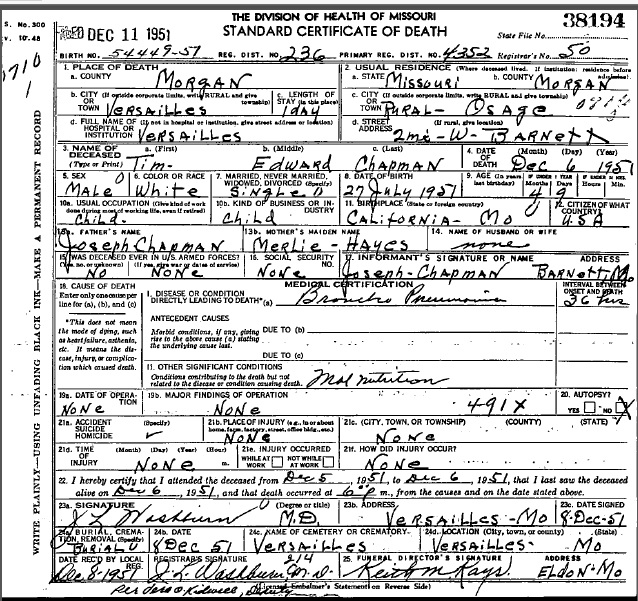 THE DIVISION OF HEALTH OF MISSOURI
STANDARD CERTIFICATE OF DEATH
38194
S. No. 300
V. 10-48
FILED DEC 11 1951
State File No.
BIRTH NO. 54449-51 REG. DIST. NO. 236 PRIMARY REG. DIST. NO. 4352 Registrar's No. 50
1. PLACE OF DEATH
a. COUNTY MORGAN
2. USUAL RESIDENCE (Where deceased lived. If institution: residence before admission)
a. STATE Missouri b. COUNTY MORGAN
b. CITY (If outside corporate limits, write RURAL and give township) OR TOWN VERSAILLES
c. LENGTH OF STAY (in this place) 1 day
c. CITY (If outside corporate limits, write RURAL and give township) OR TOWN Rural - Osage
d. FULL NAME OF (If not in hospital or institution, give street address or location) HOSPITAL OR INSTITUTION VERSAILLES
d. STREET ADDRESS (If rural, give location) 2mi-W-BARNETT
3. NAME OF DECEASED (Type or Print)
a. (First) Tim- b. (Middle) Edward c. (Last) Chapman
4. DATE OF DEATH (Month) (Day) (Year) Dec 6 1951
5. SEX Male
6. COLOR OR RACE White
7. MARRIED, NEVER MARRIED, WIDOWED, DIVORCED (Specify) Single
8. DATE OF BIRTH 27 July 1951
9. AGE (In years last birthday) IF UNDER 1 YEAR Months Days 4 9 IF UNDER 24 HRS. Hours Min.
10a. USUAL OCCUPATION (Give kind of work done during most of working life, even if retired) Child
10b. KIND OF BUSINESS OR INDUSTRY Child
11. BIRTHPLACE (State or foreign country) CALIFORNIA - Mo
12. CITIZEN OF WHAT COUNTRY? USA
13a. FATHER'S NAME Joseph Chapman
13b. MOTHER'S MAIDEN NAME Merlie-Hayes
14. NAME OF HUSBAND OR WIFE none
15. WAS DECEASED EVER IN U.S. ARMED FORCES? (Yes, no, or unknown) (If yes, give war or dates of service) No None
16. SOCIAL SECURITY NO. None
17. INFORMANT'S SIGNATURE OR NAME ADDRESS
Joseph-Chapman Barnett, Mo
18. CAUSE OF DEATH
Enter only one cause per line for (a), (b), and (c)
MEDICAL CERTIFICATION
INTERVAL BETWEEN ONSET AND DEATH
I. DISEASE OR CONDITION DIRECTLY LEADING TO DEATH*(a) Broncho Pneumonia 36 hrs
*This does not mean the mode of dying, such as heart failure, asthenia, etc. It means the disease, injury, or complication which caused death.
ANTECEDENT CAUSES
Morbid conditions, if any, giving rise to the above cause (a) stating the underlying cause last.
DUE TO (b)
DUE TO (c)
II. OTHER SIGNIFICANT CONDITIONS
Conditions contributing to the death but not related to the disease or condition causing death. Mal nutrition
19a. DATE OF OPERATION None
19b. MAJOR FINDINGS OF OPERATION None 491X
20. AUTOPSY? YES NO X
21a. ACCIDENT SUICIDE HOMICIDE
21b. PLACE OF INJURY (e.g., in or about home, farm, factory, street, office bldg., etc.) None
21c. (CITY, TOWN, OR TOWNSHIP) (COUNTY) (STATE) None
21d. TIME OF INJURY (Month) (Day) (Year) (Hour) None m.
21e. INJURY OCCURRED WHILE AT WORK NOT WHILE AT WORK
21f. HOW DID INJURY OCCUR? None
22. I hereby certify that I attended the deceased from Dec 5, 1951, to Dec 6, 1951, that I last saw the deceased
alive on Dec 6, 1951, and that death occurred at 6 P m., from the causes and on the date stated above.
23a. SIGNATURE (Degree or title) J L Washburn M.D.
23b. ADDRESS Versailles-Mo
23c. DATE SIGNED 8-Dec-51
24a. BURIAL, CREMATION, REMOVAL (Specify) Burial
24b. DATE 8 Dec 51
24c. NAME OF CEMETERY OR CREMATORY Versailles
24d. LOCATION (City, town, or county) (State) Versailles- Mo
DATE REC'D BY LOCAL REG. Dec. 8-1951
REGISTRAR'S SIGNATURE J. L. Washburn M.D. 214
25. FUNERAL DIRECTOR'S SIGNATURE ADDRESS
Keith M Kays Eldon-Mo
(Licensed Embalmer's Statement on Reverse Side)
WRITE PLAINLY—USING UNFADING BLACK INK—MAKE A PERMANENT RECORD